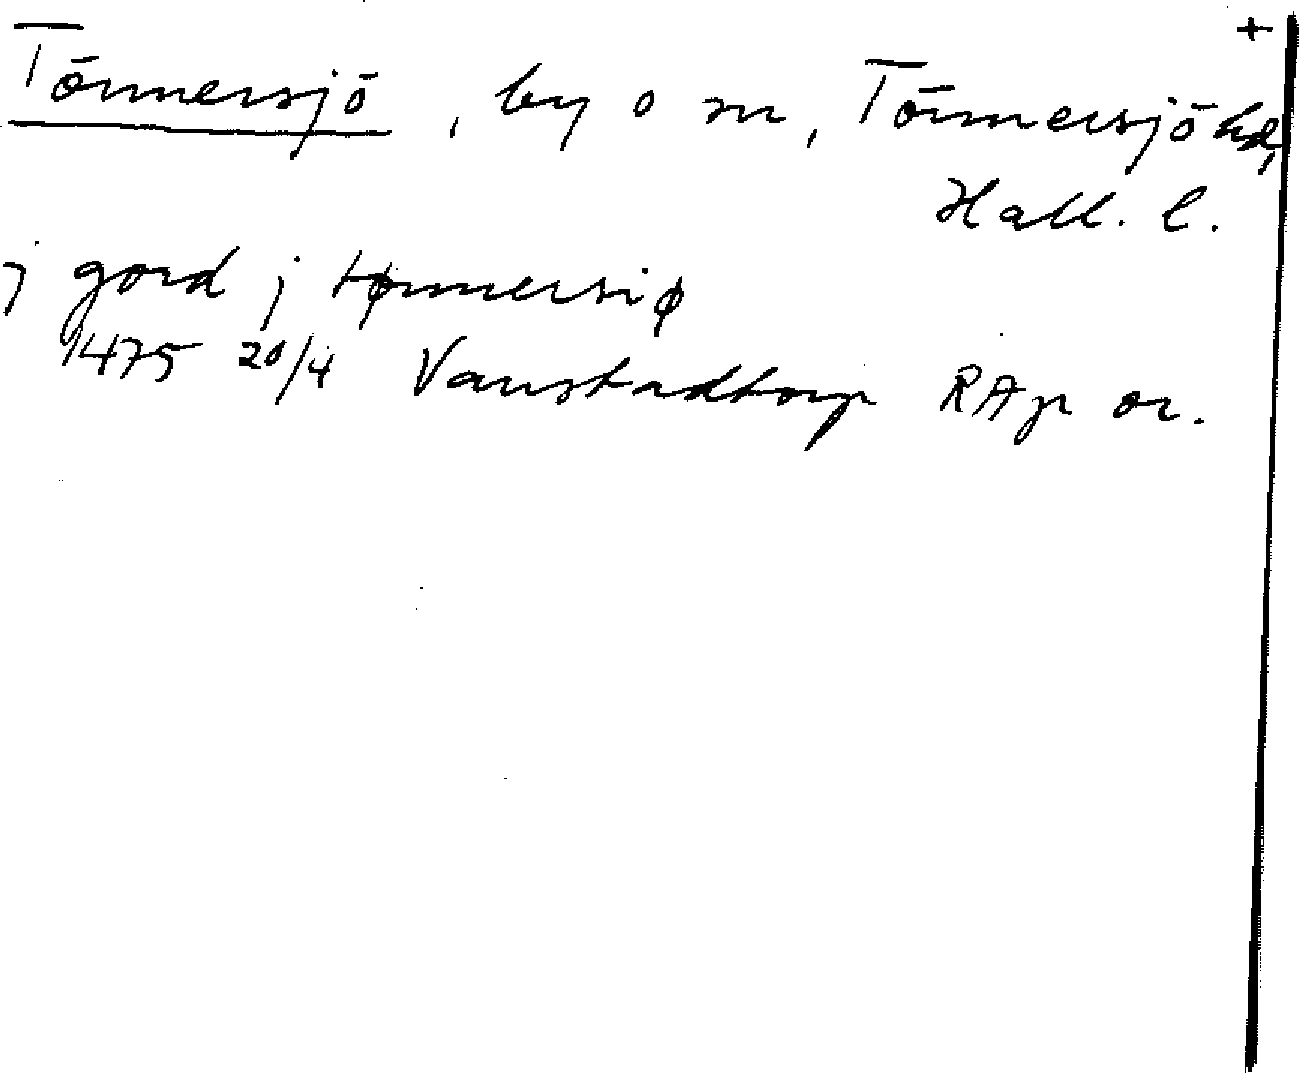 +
Tönnersjö, by o sn, Tönnersjö hd,
Hall. l.
j gord j tønnersiø
1475 20/4 Vanstadtorp RAp or.